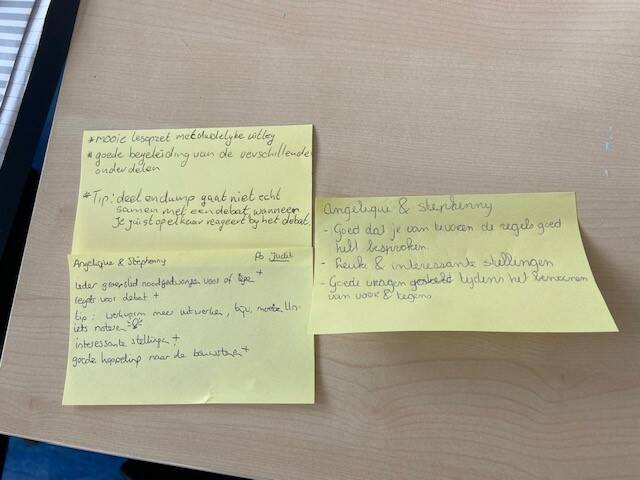 * mooie lesopzet met duidelijke uitleg
* goede begeleiding van de verschillende
onderdelen
* Tip: deel en dump gaat niet echt
samen met een debat, wanneer
je juist op elkaar reageert bij het debat.
Angelique & Stephenny
Po Judit
Ieder groepslid noodgedwongen voor of tegen +
regels voor debat +
tip: werkvorm meer uitwerken, bijv. moeten lln.
iets noteren
interessante stellingen +
goede koppeling naar de bouwstenen +
Angelique & Stephenny
- Goed dat je van tevoren de regels goed
hebt besproken.
- Leuke & interessante stellingen
- Goede vragen gesteld tijdens het benoemen
van voor & tegens